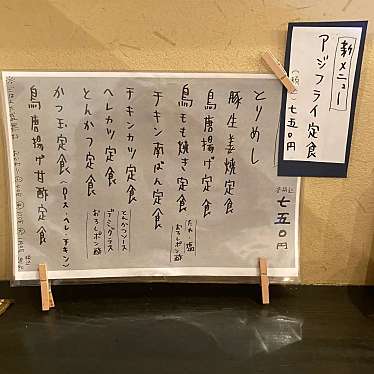 新メニュー
アジフライ定食
七五〇円
とりめし
豚生姜焼定食
鳥唐揚げ定食
鳥もも焼き定食
たれ・塩
おろしポン酢
チキン南ばん定食
チキンカツ定食
とんかつ定食
ヘレカツ定食
とんかつソース
デミグラス
おろしポン酢
かつ玉定食(ロース・ヘレ・チキン)
鳥唐揚げ甘酢定食
七五〇円